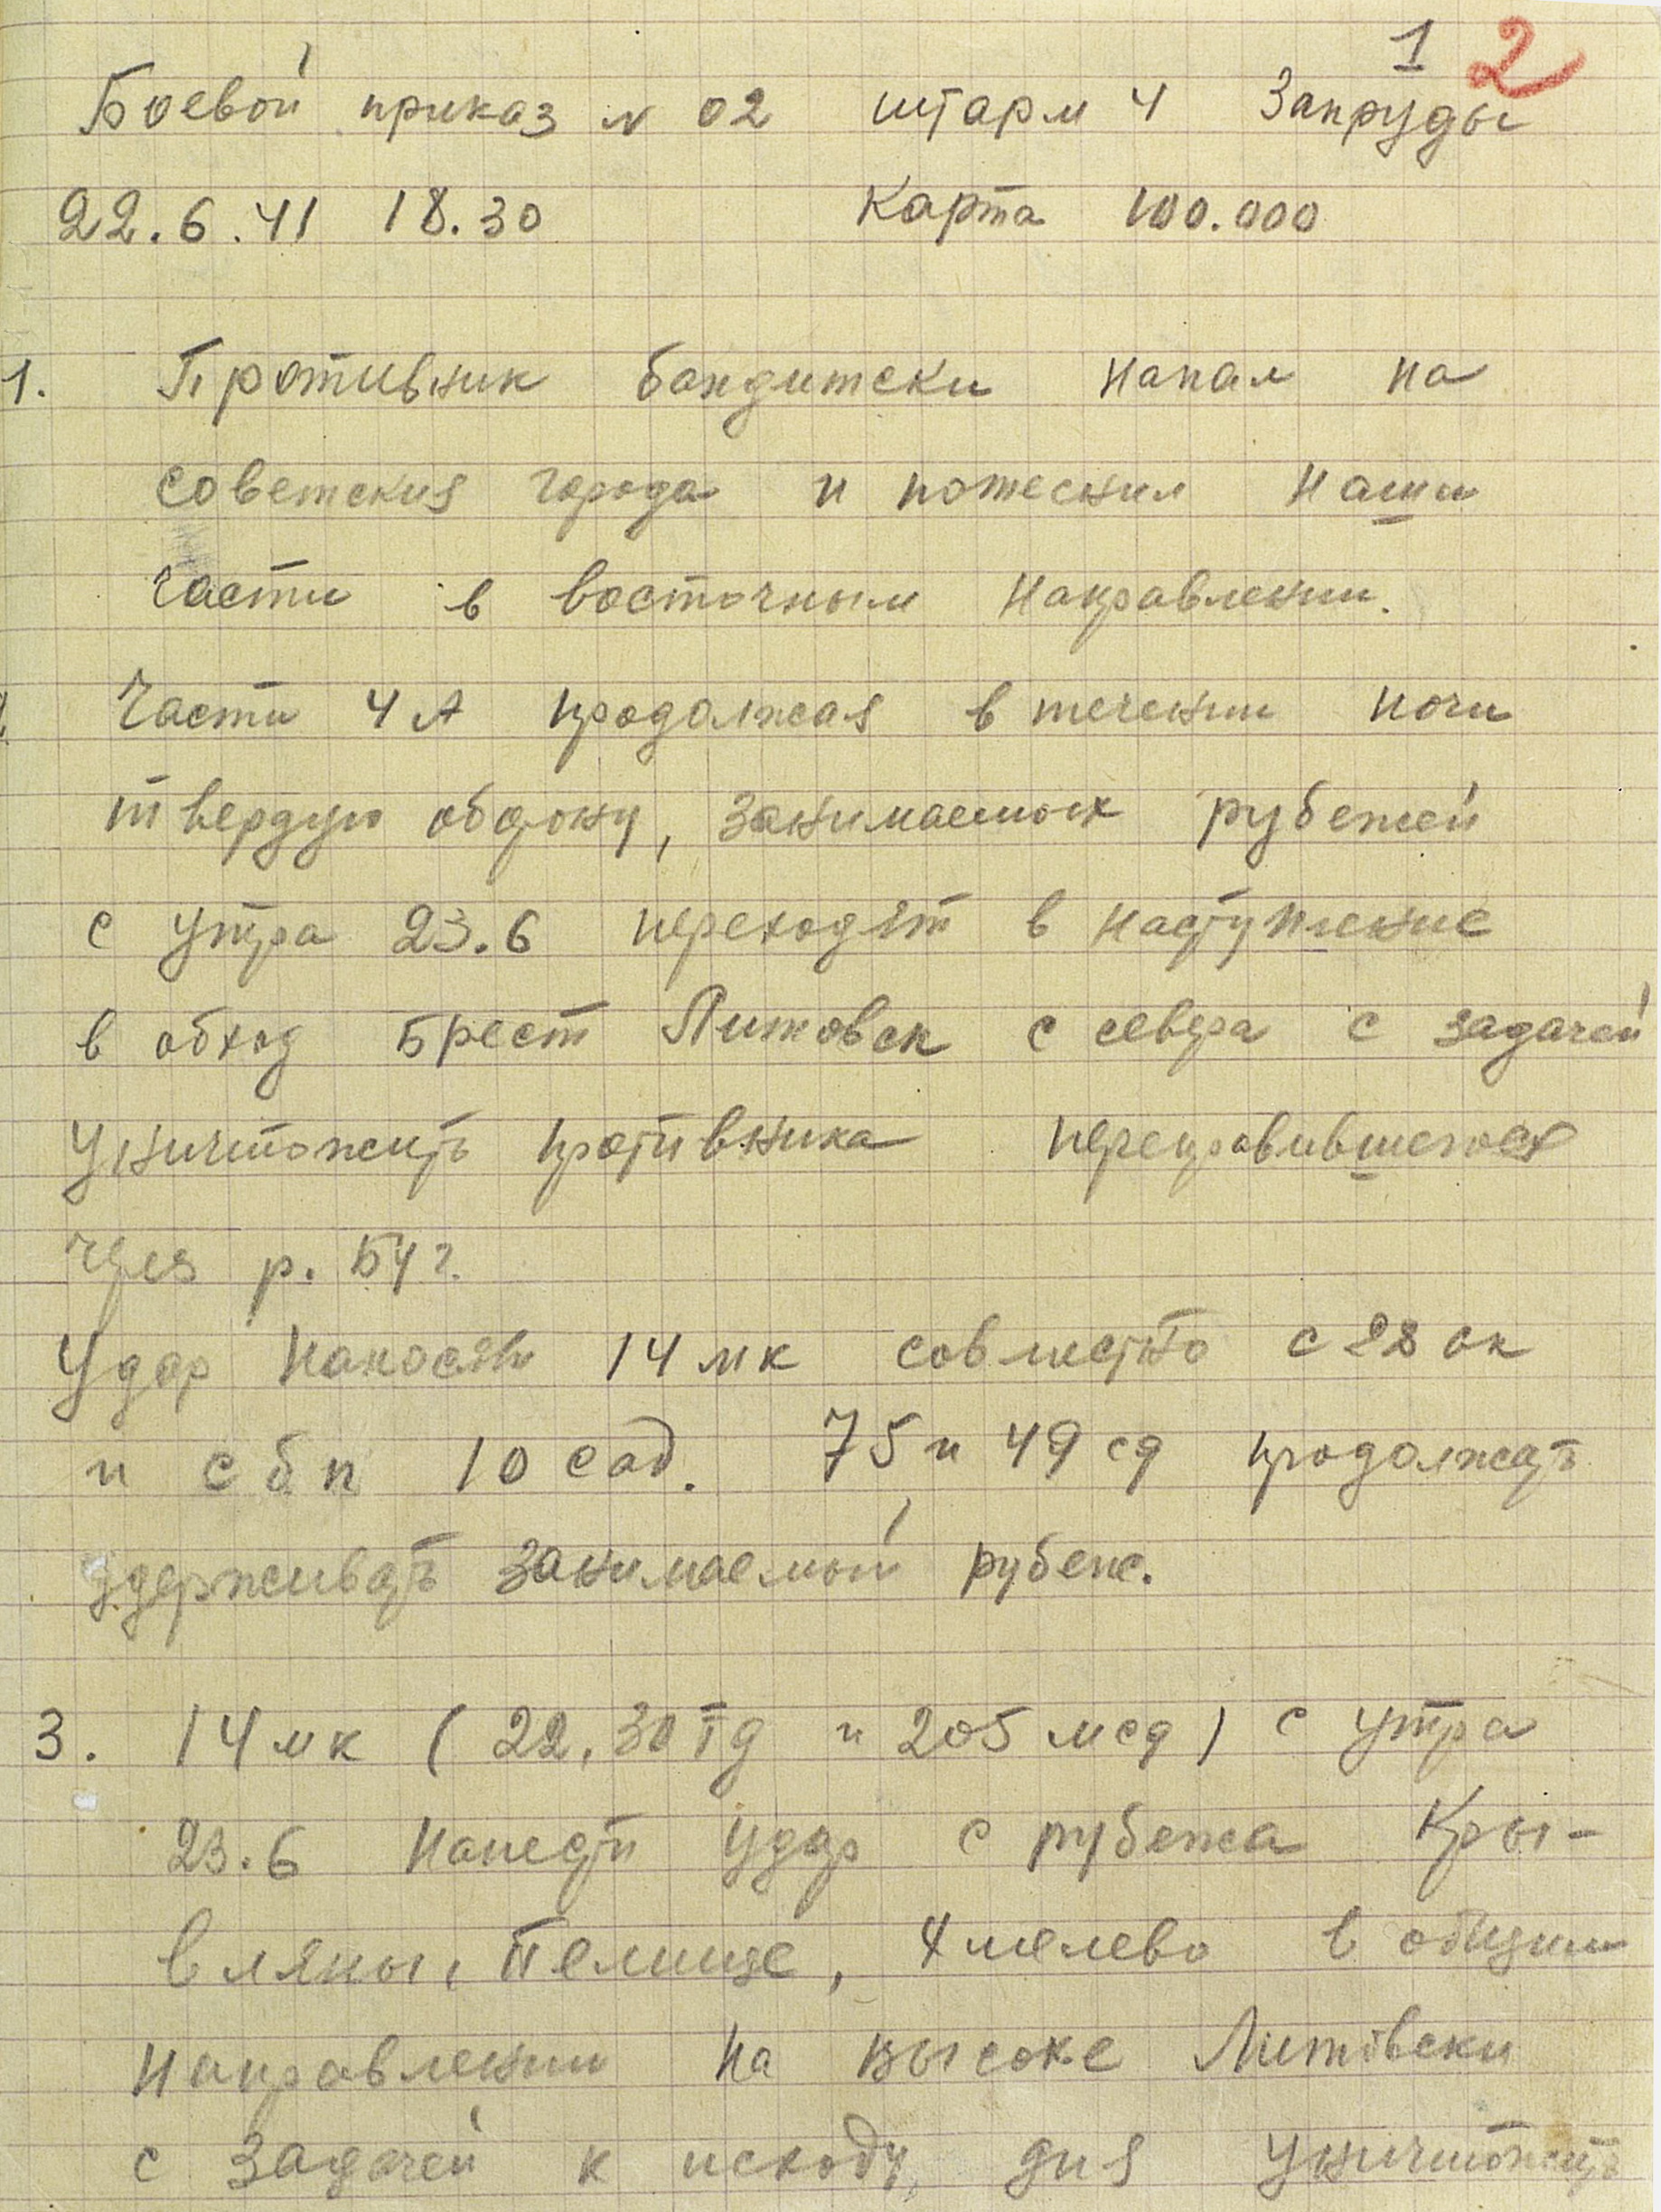 1 2
Боевой приказ № 02 штарм 4 Запруды
22.6.41 18.30 Карта 100.000
1. Противник бандитски напал на
советския города и потеснил наши
части в восточным направлении.
Части 4 А продолжая в течении ночи
твердую оборону, занимаемых рубежей
с утра 23.6 переходят в наступление
в обход Брест Литовск с севера с задачей
уничтожить противника переправившегося
через р. Буг.
Удар наносят 14 мк совместно с 28 ск
и сбп 10 сад. 75 и 49 сд продолжать
удерживать занимаемый рубеж.
3. 14 мк (22, 30 тд и 205 мсд) с утра
23.6 нанести удар с рубежа Кры-
вляны, Пелище, Хмелево в общем
направлении на Высоке Литовски
с задачей к исходу, дня уничтожить